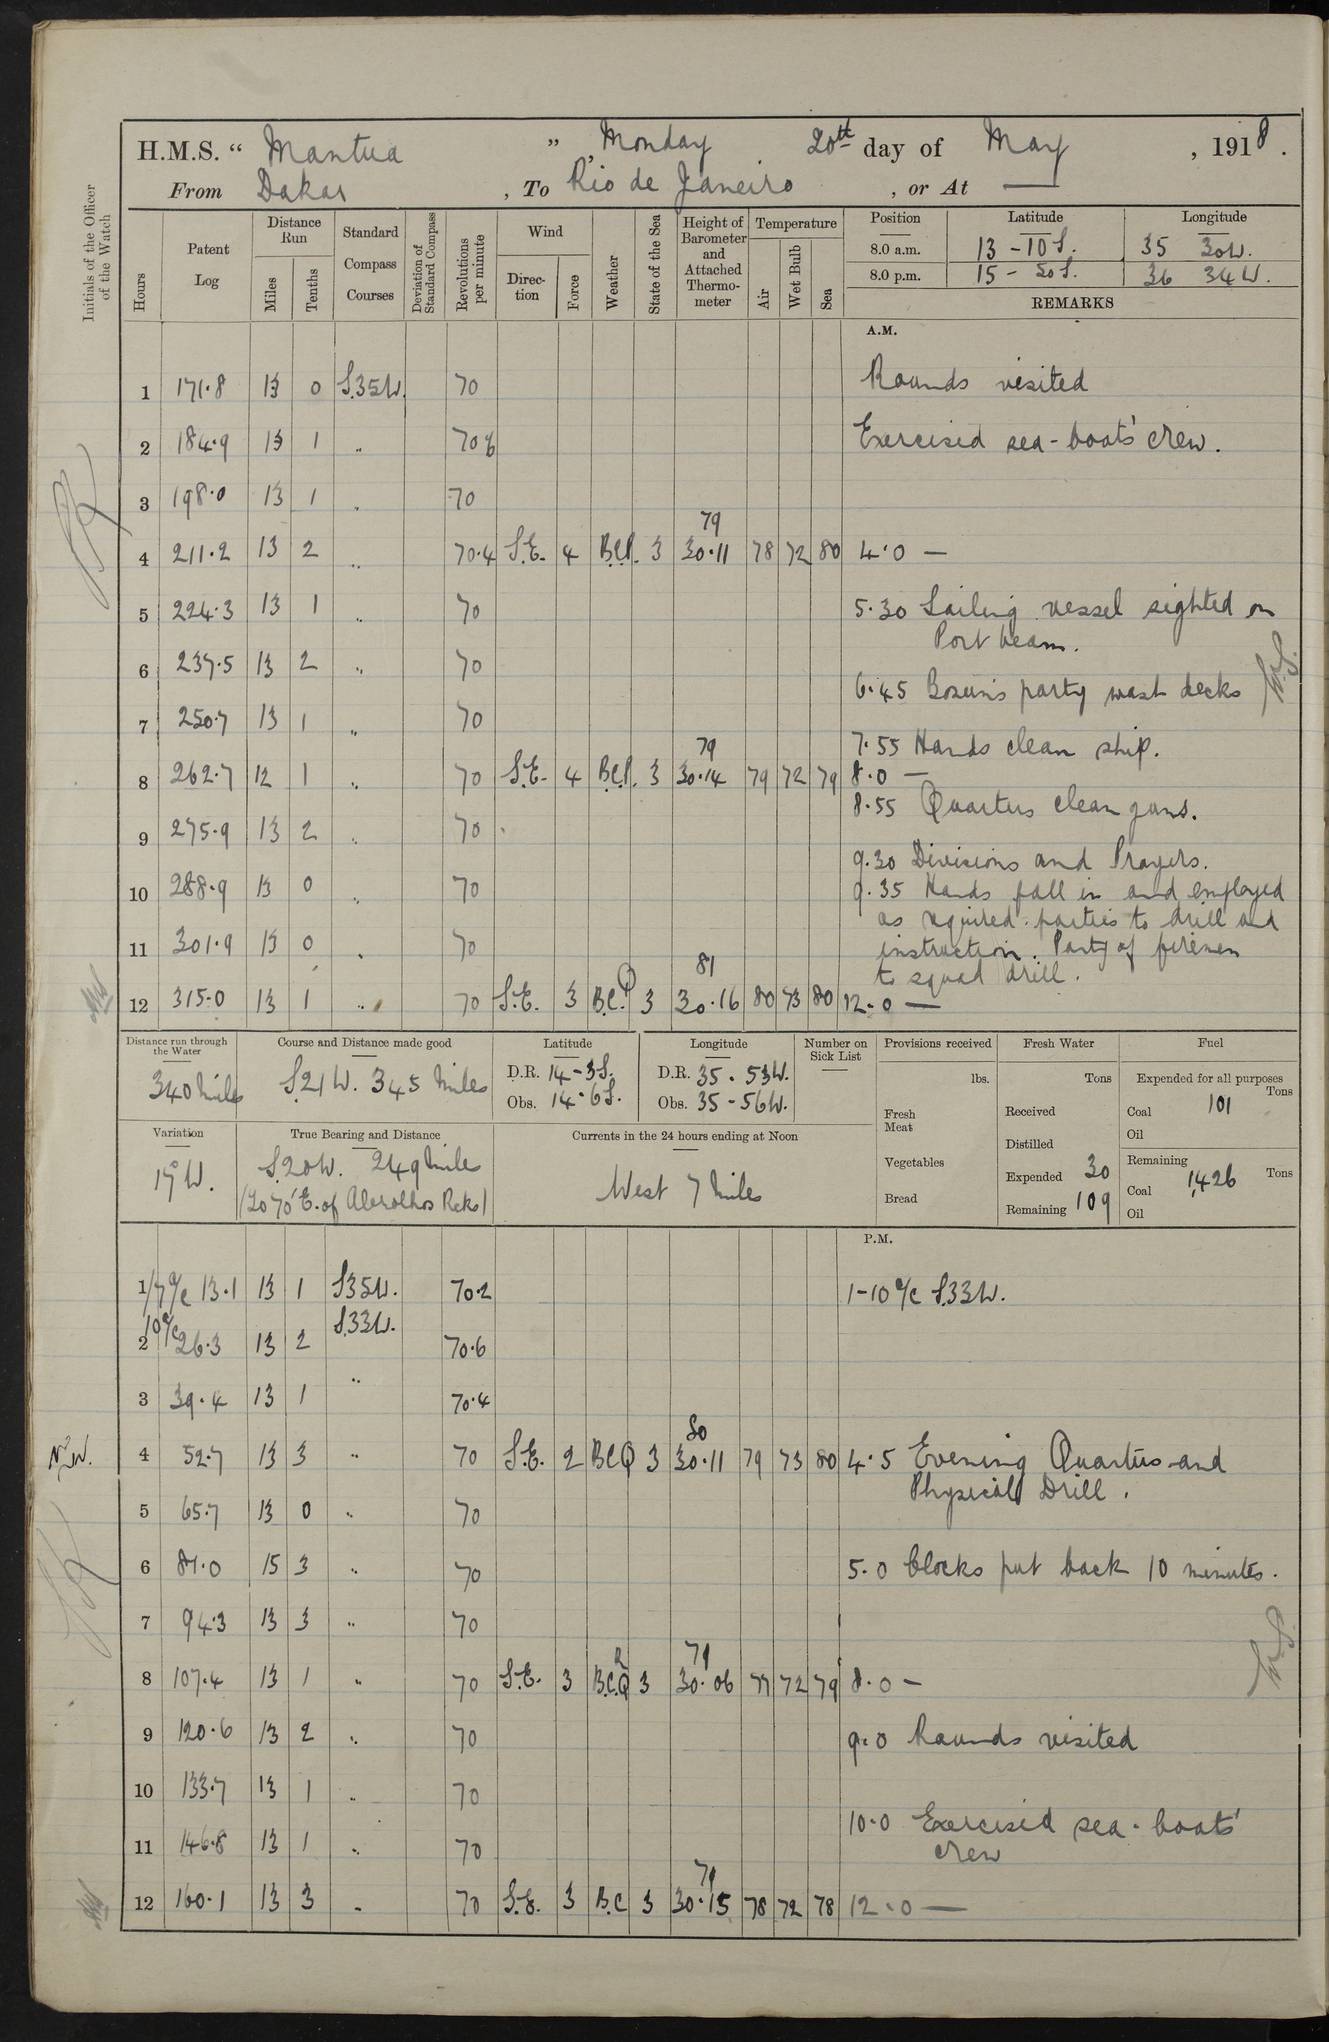 H.M.S. “ Mantua ” , Monday 20th day of May , 1918 .
From Dakar , To Rio de Janeiro , or At —
Initials of the Officer of the Watch
Hours
Patent Log
Distance Run
Miles
Tenths
Standard Compass Courses
Deviation of Standard Compass
Revolutions per minute
Wind
Direction
Force
Weather
State of the Sea
Height of Barometer and Attached Thermometer
Temperature
Air
Wet Bulb
Sea
Position Latitude Longitude
8.0 a.m. 13 - 10 S. 35 30 W.
8.0 p.m. 15 - 50 S. 36 34 W.
REMARKS
A.M.
1 171.8 13 0 S.35W. 70 Rounds visited
2 184.9 13 1 .. 70.6 Exercised sea-boats' crew.
3 198.0 13 1 .. 70
79
4 211.2 13 2 .. 70.4 S.E. 4 B.C.P. 3 30.11 78 72 80 4.0 —
5 224.3 13 1 .. 70 5.30 Sailing vessel sighted on
Port beam.
6 237.5 13 2 .. 70
6.45 Bosun's party wash decks
7 250.7 13 1 .. 70
7.55 Hands clean ship.
79
8 262.7 12 1 .. 70 S.E. 4 B.C.P. 3 30.14 79 72 79 8.0 —
8.55 Quarters clean guns.
9 275.9 13 2 .. 70
9.30 Divisions and Prayers.
10 288.9 13 0 .. 70 9.35 Hands fall in and employed
as required. parties to drill and
11 301.9 13 0 .. 70 instruction. Party of firemen
to squad drill.
81
12 315.0 13 1 .. 70 S.E. 3 B.C.Q 3 30.16 80 73 80 12.0 —
Distance run through the Water
340 Miles
Course and Distance made good
S.21W. 345 Miles
Latitude
D.R. 14-3S.
Obs. 14-6S.
Longitude
D.R. 35.53W.
Obs. 35-56W.
Number on Sick List
—
Provisions received
lbs.
Fresh Meat
Vegetables
Bread
Fresh Water
Tons
Received
Distilled
Expended 30
Remaining 109
Fuel
Expended for all purposes
Tons
Coal 101
Oil
Remaining
Tons
Coal 1,426
Oil
Variation
19°W.
True Bearing and Distance
S.20W. 249 Miles
(To 70' E. of Abrolhos Rks)
Currents in the 24 hours ending at Noon
West 7 Miles
P.M.
1 /7 a/c 13.1 13 1 S35W. 70.2 1-10 a/c S.33W.
10 a/c S.33W.
2 26.3 13 2 70.6
3 39.4 13 1 .. 70.4
80
4 52.7 13 3 .. 70 S.E. 2 B.C.Q 3 30.11 79 73 80 4.5 Evening Quarters and
Physical Drill.
5 65.7 13 0 .. 70
6 81.0 15 3 .. 70 5.0 Clocks put back 10 minutes.
7 94.3 13 3 .. 70
79
8 107.4 13 1 .. 70 S.E. 3 B.C.Q R 3 30.06 77 72 79 8.0 —
9 120.6 13 2 .. 70 9.0 Rounds visited
10 133.7 13 1 .. 70
10.0 Exercised sea-boats'
11 146.8 13 1 .. 70 crew
79
12 160.1 13 3 .. 70 S.E. 3 B.C 3 30.15 78 72 78 12.0 —